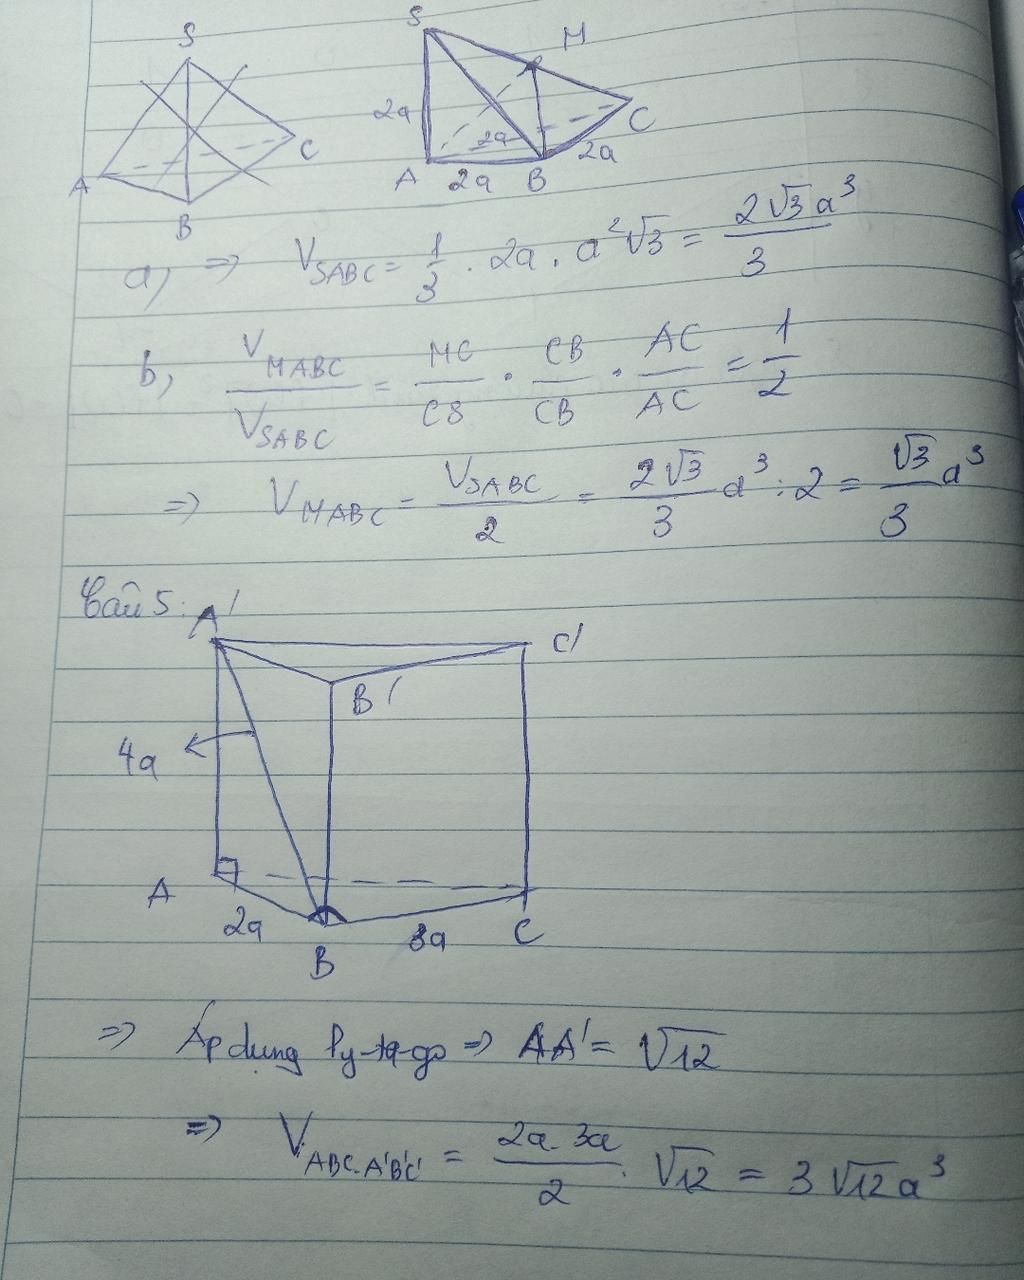 S
A
B
C
S
M
2a
2a
A
2a
B
2a
C
a, => V_SABC = 1/3 . 2a . a²√3 = 2√3a³/3
b, V_MABC/V_SABC = MC/CS . CB/CB . AC/AC = 1/2
=> V_MABC = V_SABC/2 = 2√3/3 a³ : 2 = √3/3 a³
Câu 5:
A'
C'
B'
4a
A
2a
B
3a
C
=> Áp dụng Py-ta-go => AA' = √12
=> V_ABC.A'B'C' = 2a.3a/2 . √12 = 3√12a³